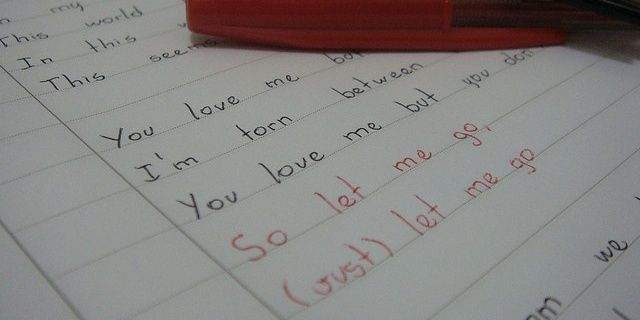 my
This world
In this
This seems
You love me but
I'm torn between
You love me but you don
So let me go,
(just) let me go
we